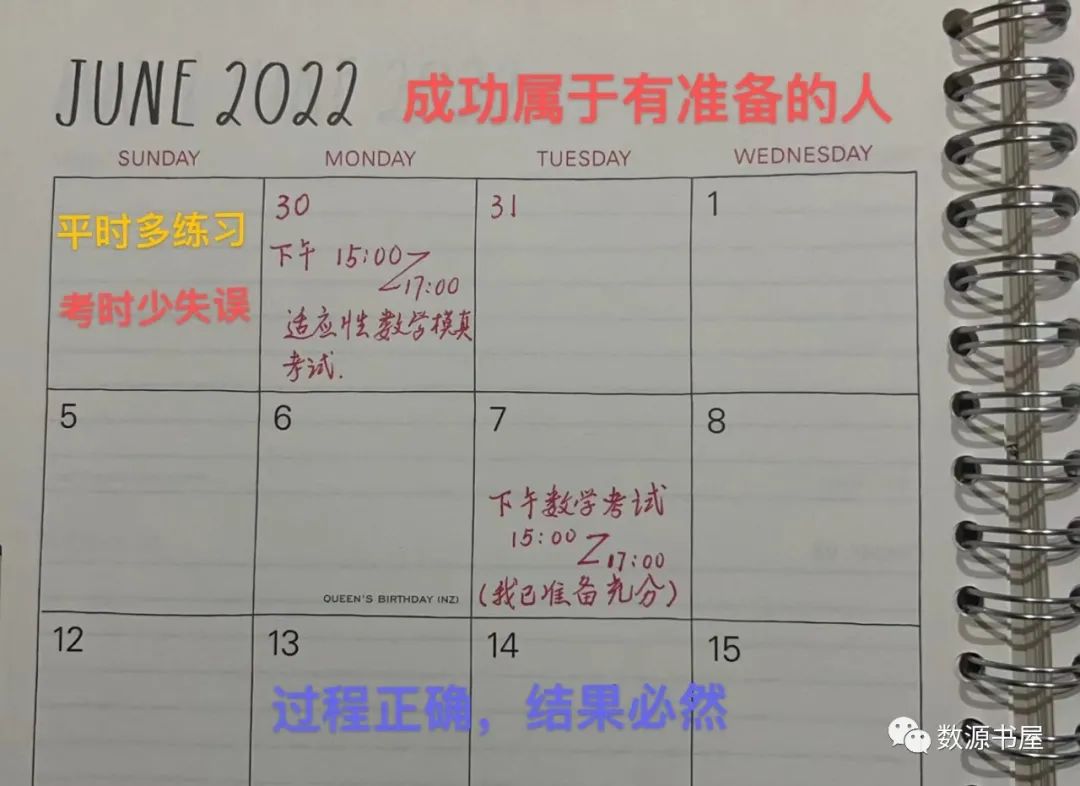 JUNE 2022 成功属于有准备的人
SUNDAY MONDAY TUESDAY WEDNESDAY
平时多练习
考时少失误
30
下午 15:00
17:00
适应性数学模真
考试.
31
1
5
6
QUEEN'S BIRTHDAY (NZ)
7
下午数学考试
15:00
17:00
(我已准备充分)
8
12
13
14
15
过程正确，结果必然
数源书屋